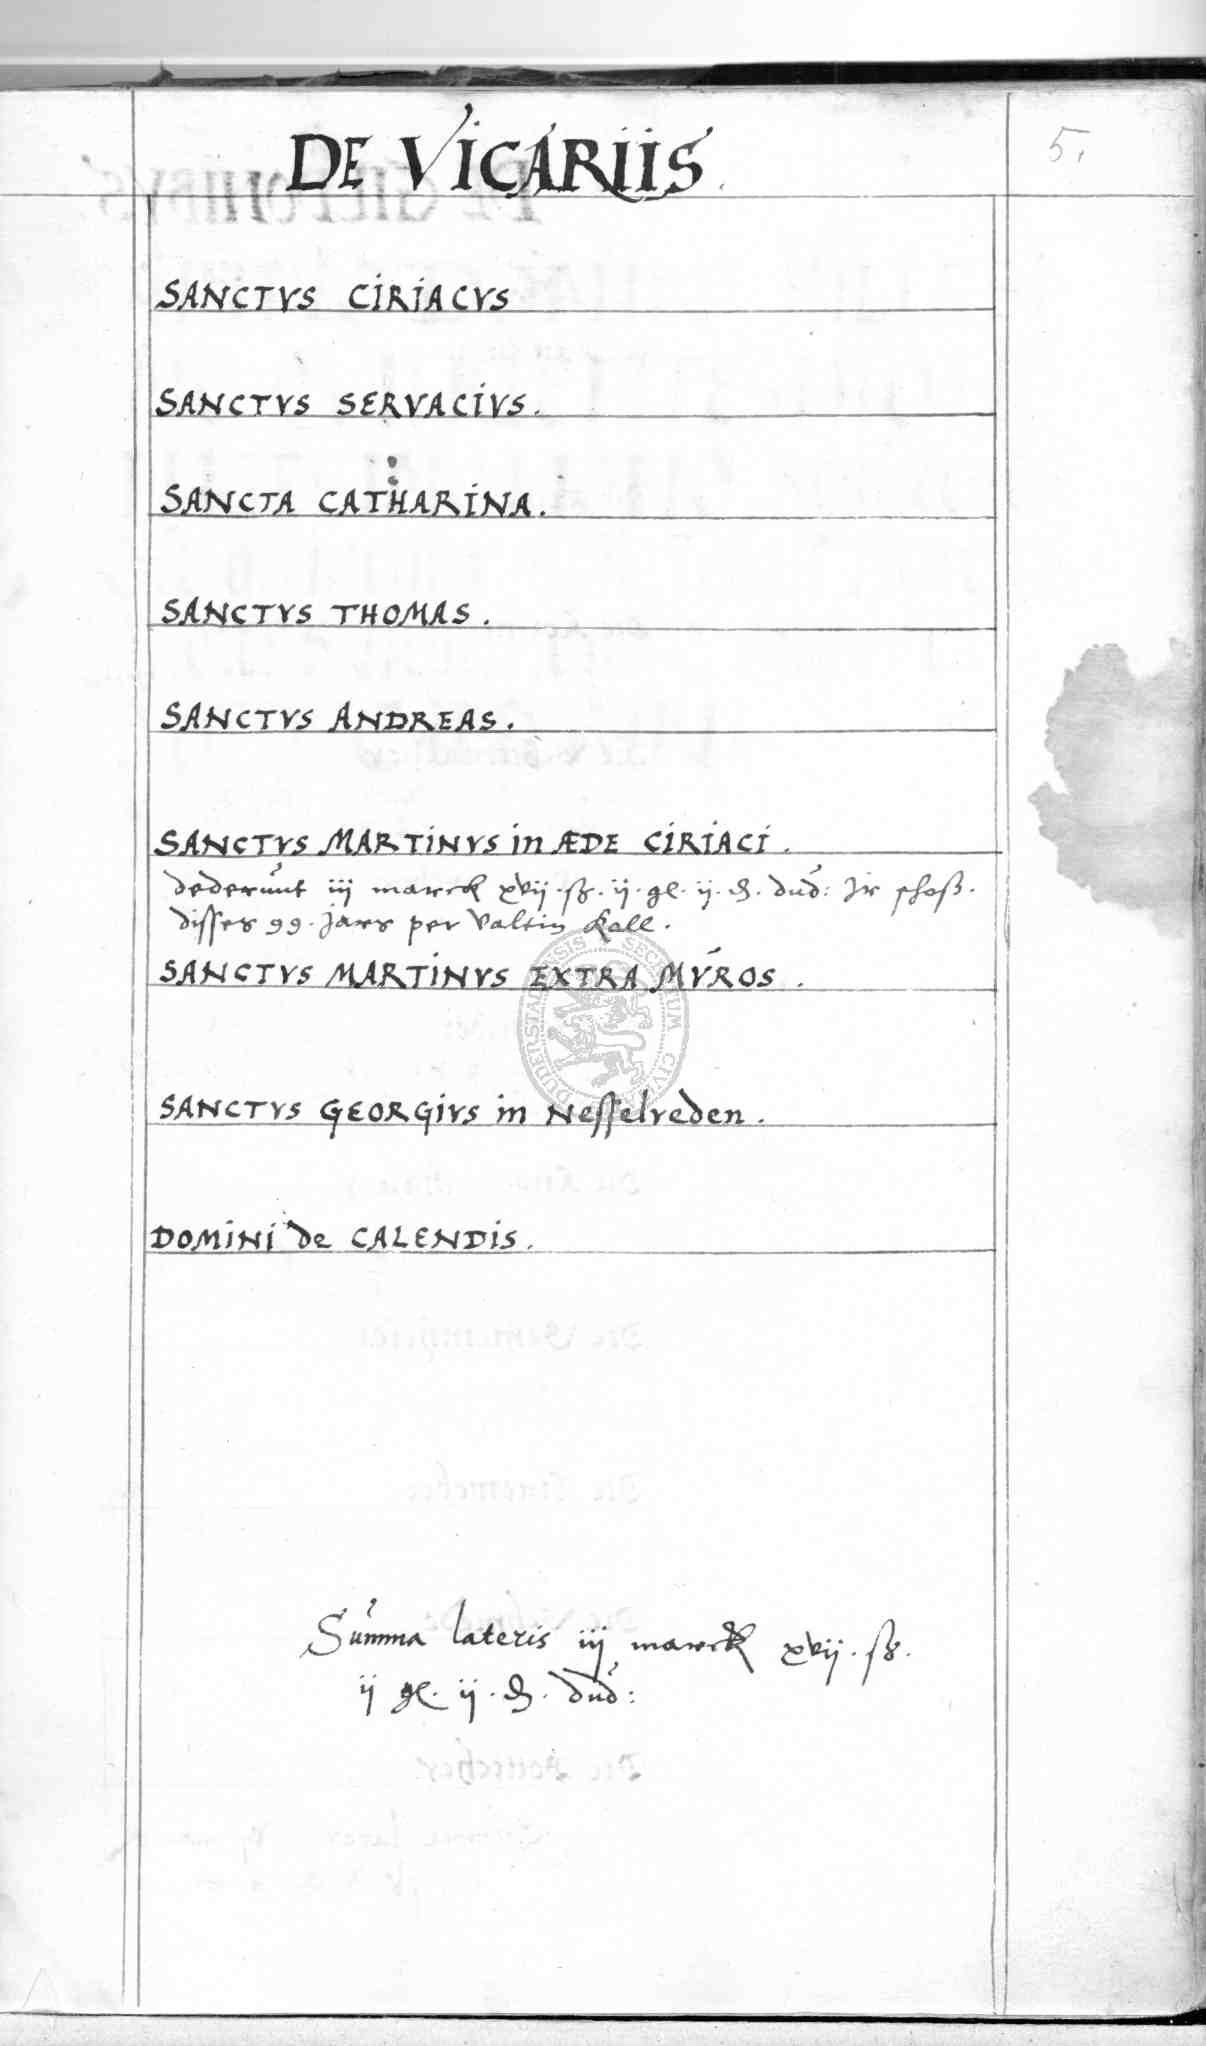 DE VICARIIS
5.
SANCTVS CIRIACVS
SANCTVS SERVACIVS.
SANCTA CATHARINA.
SANCTVS THOMAS.
SANCTVS ANDREAS.
SANCTVS MARTINVS in ÆDE CIRIACI.
dederunt iij marck xvij ß. ij. gl. ij. ₰. dud: Ir schoß.
disses 99. jars per Valtin Kall.
SANCTVS MARTINVS EXTRA MVROS.
SANCTVS GEORGIVS in Nesselreden.
DOMINI de CALENDIS.
Summa lateris iij marck xvij. ß.
ij gl. ij. ₰. dud: